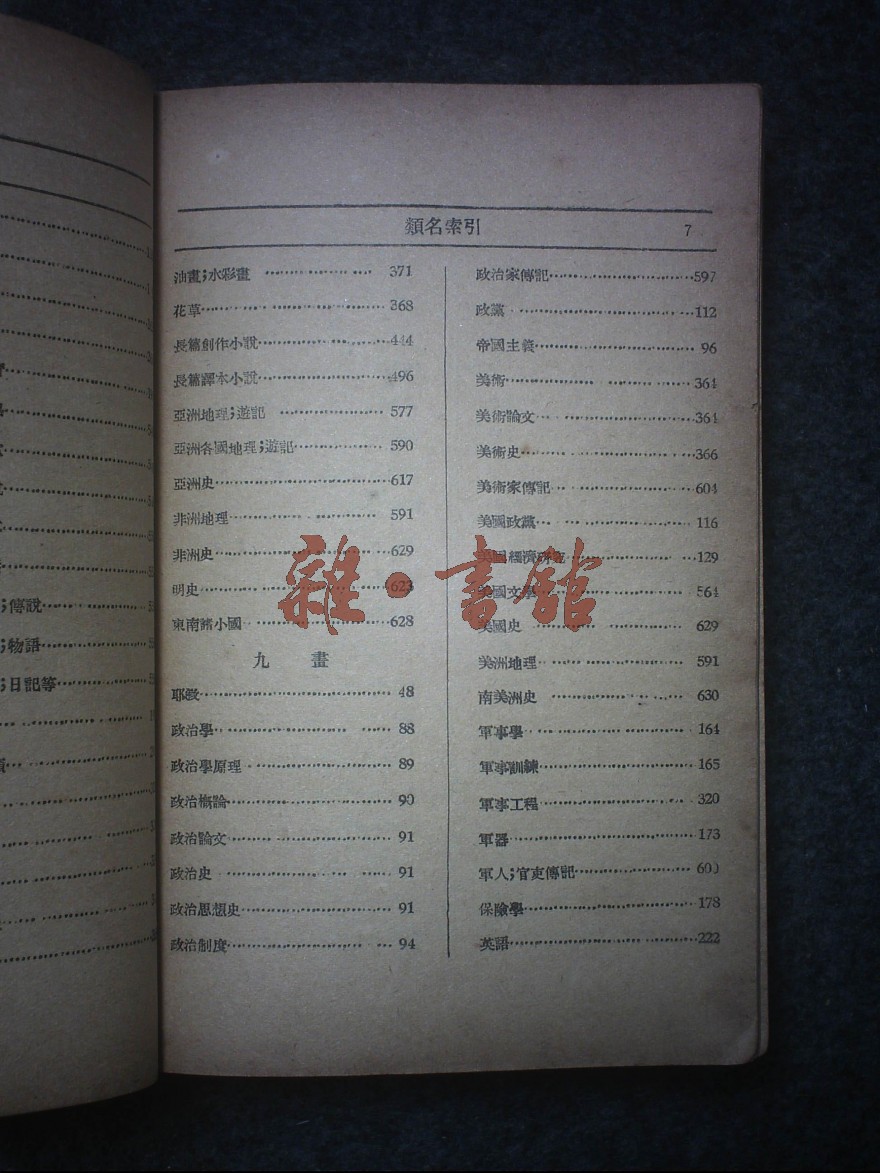 類名索引 7
油畫;水彩畫 371
花草 368
長篇創作小說 444
長篇譯本小說 496
亞洲地理;遊記 577
亞洲各國地理;遊記 590
亞洲史 617
非洲地理 591
非洲史 629
明史 623
東南諸小國 628
九畫
耶教 48
政治學 88
政治學原理 89
政治概論 90
政治論文 91
政治史 91
政治思想史 91
政治制度 94
政治家傳記 597
政黨 112
帝國主義 96
美術 364
美術論文 364
美術史 366
美術家傳記 604
美國政黨 116
美國經濟研究 129
美國文學 564
美國史 629
美洲地理 591
南美洲史 630
軍事學 164
軍事訓練 165
軍事工程 320
軍器 173
軍人;官吏傳記 600
保險學 178
英語 222
;傳說
;物語
;日記等
雜·書館